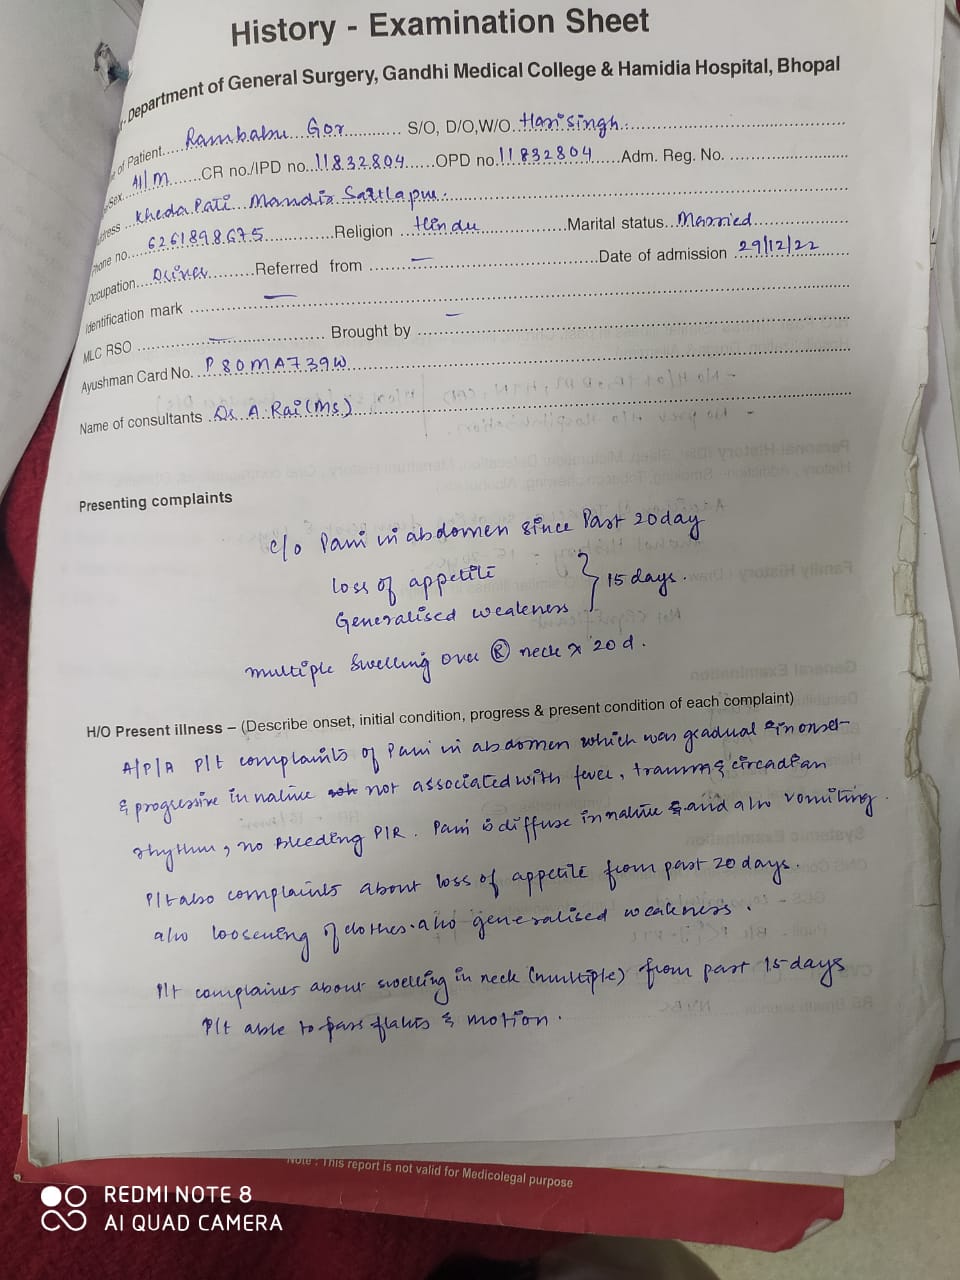 History - Examination Sheet
Department of General Surgery, Gandhi Medical College & Hamidia Hospital, Bhopal
of Patient..... Rambabu Gor ........... S/O, D/O,W/O.. Harisingh
Sex.. 41/M ......CR no./IPD no. 11832804 ......OPD no. 11832804 .....Adm. Reg. No. ..............
Kheda Pati Mandir
no... 6261898675 ............Religion ... Hindu ...............Marital status.. Married
Occupation.... Driver ........Referred from ...... — ...............Date of admission 29/12/22
Identification mark ......... —
MLC RSO .............. — ................ Brought by ..... —
Ayushman Card No. .. P80MA739W
Name of consultants . Dr A. Rai (MS)
Presenting complaints
c/o Pain in abdomen since Past 20day
loss of appetite
Generalised weakness } 15 days.
multiple Swelling over Ⓡ neck x 20 d.
H/O Present illness – (Describe onset, initial condition, progress & present condition of each complaint)
A/P/A P/t complaints of Pain in abdomen which was gradual in onset
& progressive in nature not associated with fever, trauma & circadian
rhythm, no Bleeding P/R. Pain is diffuse in nature and also vomiting.
P/t also complaints about loss of appetite from past 20 days.
also loosening of clothes. also generalised weakness.
P/t complaines about swelling in neck (multiple) from past 15-days
P/t able to pass flatus & motion.
Note : This report is not valid for Medicolegal purpose
REDMI NOTE 8
AI QUAD CAMERA